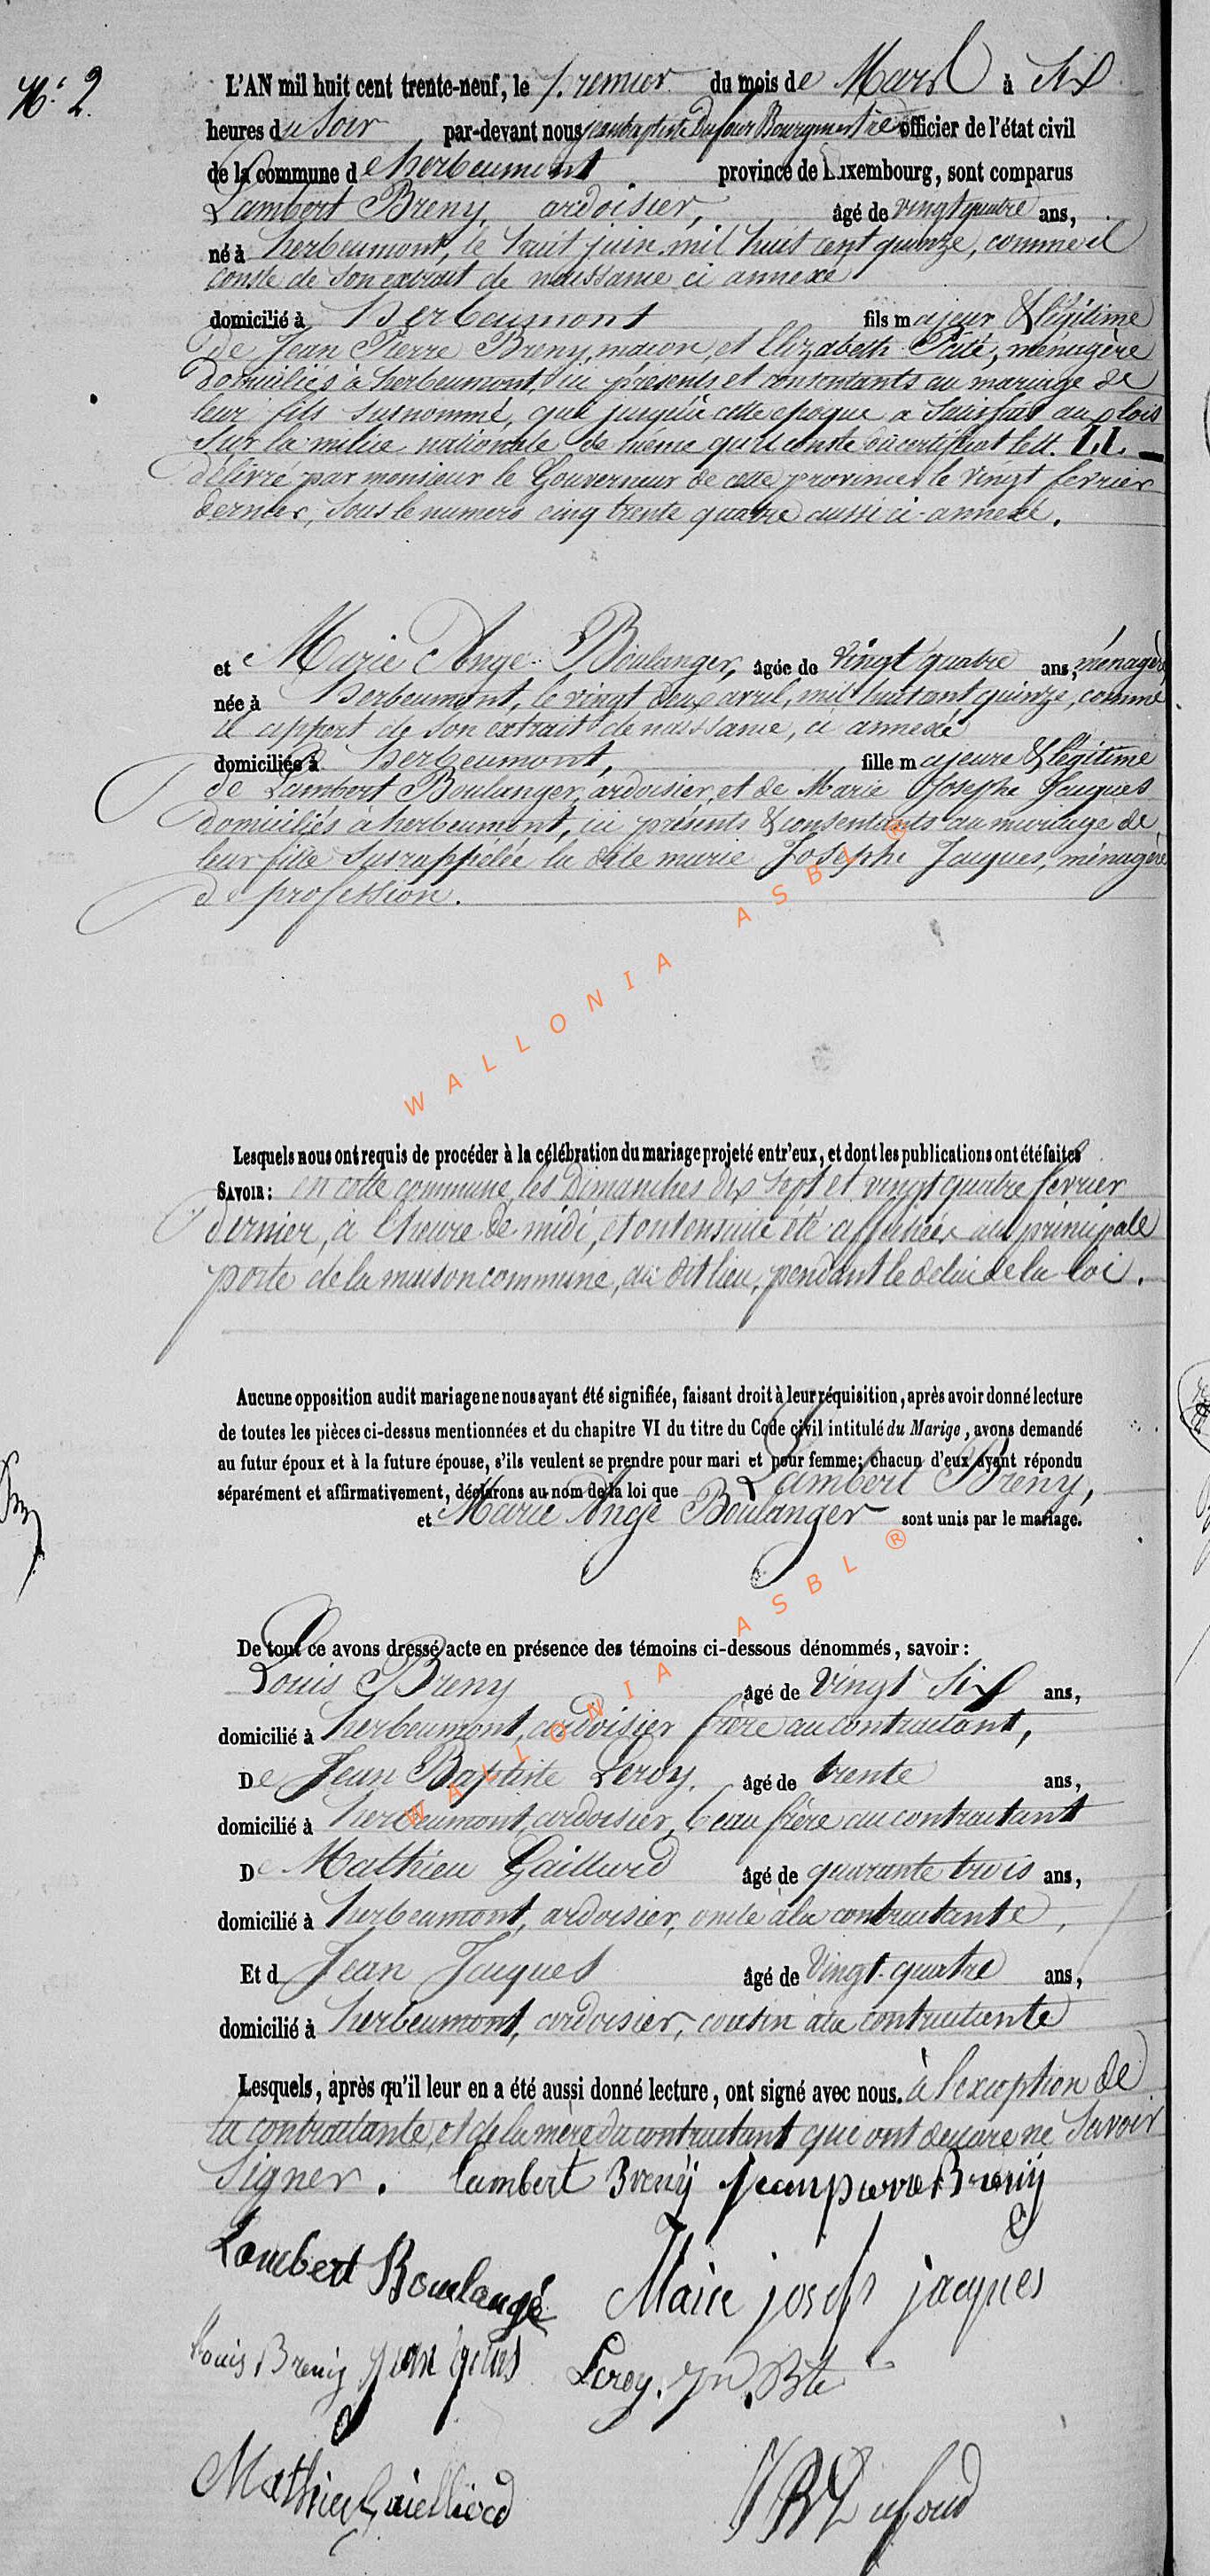 N.° 2.
L'AN mil huit cent trente-neuf, le premier du mois de Mars à Six
heures du Soir par-devant nous jean baptiste Dufour Bourgmestre officier de l'état civil
de la commune de herbeumont province de Luxembourg, sont comparus
Lambert Breny, ardoisier, âgé de vingt quatre ans,
né à herbeumont, le huit juin mil huit cent quinze, comme il
conste de son extrait de naissance ci annexé
domicilié à Herbeumont fils majeur & légitime
de Jean Pierre Breny, macon, et Elizabeth Pité, ménagère
domiciliés à herbeumont, ici présents et consentants au mariage de
leur fils susnommé, qui jusqu'à cette epoque a Satisfait aux lois
Sur la milice nationale de même qu'il conste du certificat lett. LL.
délivré par monsieur le Gouverneur de cette province le vingt fevrier
dernier, sous le numero cinq trente quatre aussi ci-annexé.
et Marie Ange Boulanger, âgée de vingt quatre ans, ménagère
née à Herbeumont, le vingt deux avril, mil huit cent quinze, comme
il appert de son extrait de naissance, ci annexé
domiciliée à herbeumont, fille majeure & légitime
de Lambert Boulanger, ardoisier, et de Marie Josephe Jacques
domiciliés à herbeumont, ici présents & consentants au mariage de
leur fille susrappélée la dite marie Josephe Jacques, ménagère
de profession.
WALLONIA ASBL ®
Lesquels nous ont requis de procéder à la célébration du mariage projeté entr'eux, et dont les publications ont été faites
SAVOIR: en cette commune, les Dimanches dix sept et vingt quatre fevrier
dernier, à l'heure de midi, et ont ensuite été affichées à la principale
porte de la maison commune, au dit lieu, pendant le delai de la loi.
Aucune opposition audit mariage ne nous ayant été signifiée, faisant droit à leur réquisition, après avoir donné lecture
de toutes les pièces ci-dessus mentionnées et du chapitre VI du titre du Code civil intitulé du Marige, avons demandé
au futur époux et à la future épouse, s'ils veulent se prendre pour mari et pour femme; chacun d'eux ayant répondu
séparément et affirmativement, déclarons au nom de la loi que Lambert Breny,
et Marie Ange Boulanger sont unis par le mariage.
WALLONIA ASBL ®
De tout ce avons dressé acte en présence des témoins ci-dessous dénommés, savoir:
Louis Breny âgé de vingt Six ans,
domicilié à herbeumont, ardoisier frère au contractant,
De Jean Baptiste Leroy, âgé de trente ans,
domicilié à herbeumont, ardoisier, beau frère au contractant
De Mathieu Gailliard âgé de quarante trois ans,
domicilié à herbeumont, ardoisier, oncle à la contractante,
Et d Jean Jacques âgé de vingt-quatre ans,
domicilié à herbeumont, ardoisier, cousin à la contractante
Lesquels, après qu'il leur en a été aussi donné lecture, ont signé avec nous. à l'exception de
la contractante, et de la mère du contractant qui ont déclaré ne Savoir
Signer. Lambert Brenÿ jean pierre Brenÿ
Lambert Boulangé Marie joseph jacques
Louis Breny Leroy. Jn. Bte
Mathieu Gailliard JB Dufour